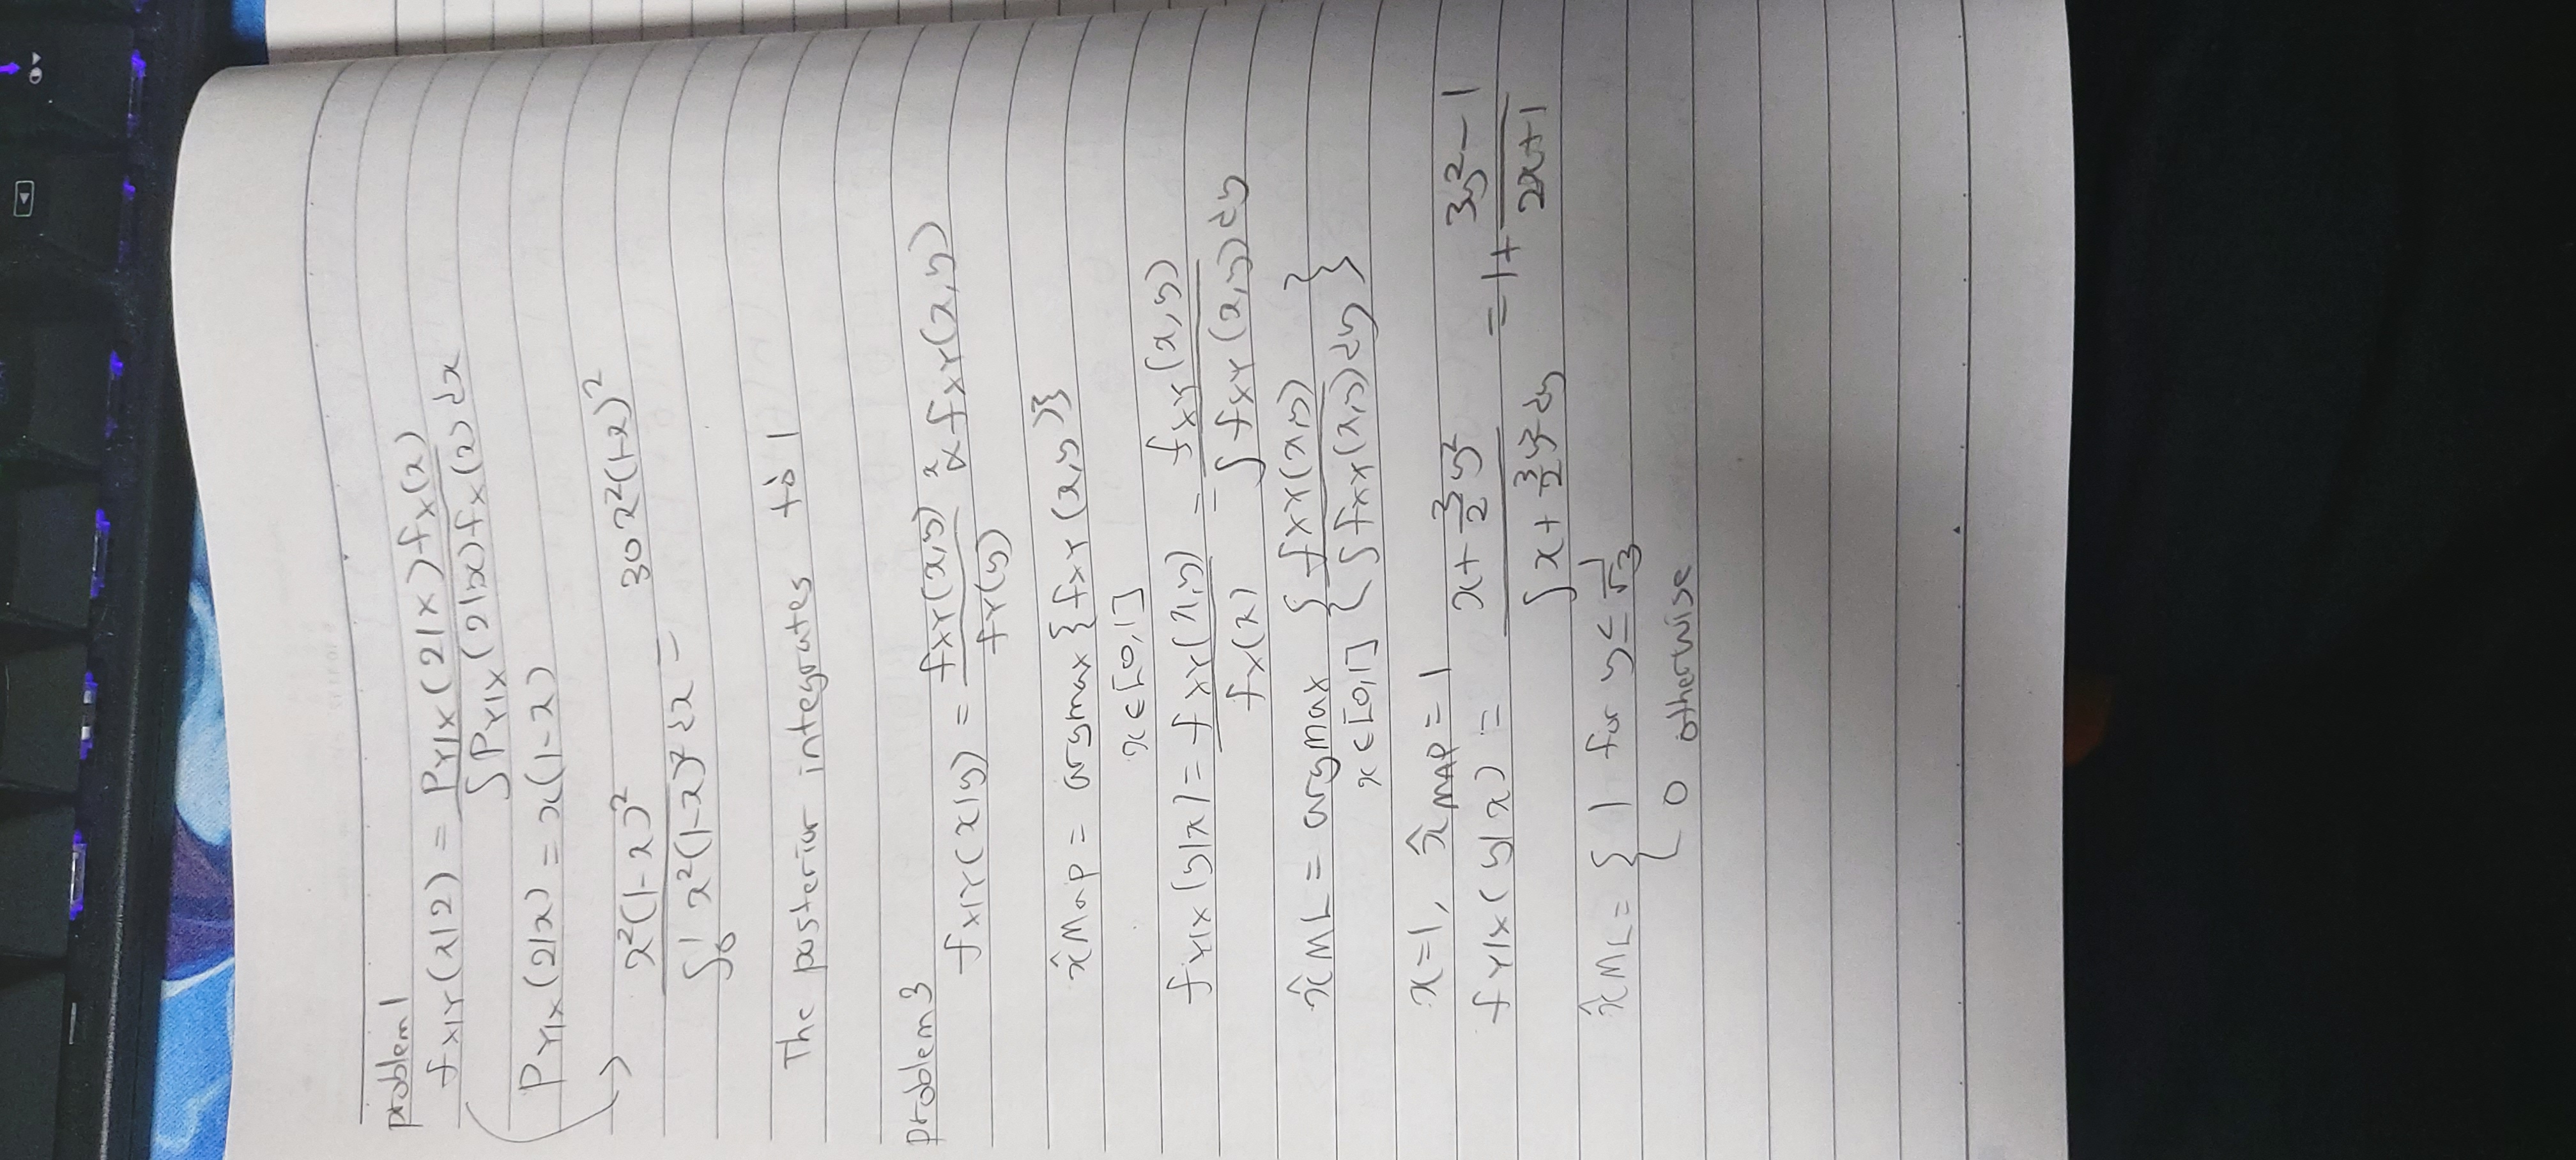 problem 1
f_{X|Y}(x|2) = P_{Y|X}(2|x) f_X(x) / ∫P_{Y|X}(2|x) f_X(x) dx
P_{Y|X}(2|x) = x(1-x)
x²(1-x)² / ∫₀¹ x²(1-x)² dx = 30x²(1-x)²
The posterior integrates to 1
problem 3
f_{X|Y}(x|y) = f_{XY}(x,y) / f_Y(y) ∝ f_{XY}(x,y)
x̂_{Map} = argmax {f_{XY}(x,y)}
x∈[0,1]
f_{Y|X}(y|x) = f_{XY}(x,y) / f_X(x) = f_{XY}(x,y) / ∫ f_{XY}(x,y) dy
x̂_{ML} = argmax { f_{XY}(x,y) / ∫ f_{XY}(x,y) dy }
x∈[0,1]
x=1, x̂_{MAP} = 1
f_{Y|X}(y|x) = x + 3/2 y² / ∫ x + 3/2 y² dy = 1 + 3y²-1 / 2x+1
x̂_{ML} = { 1 for y ≤ 1/√3
0 otherwise